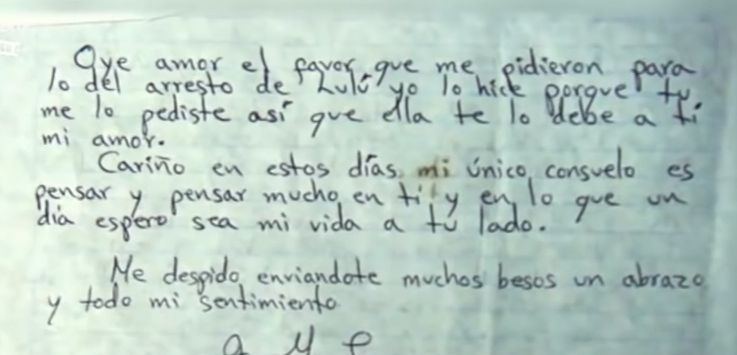 Oye amor el favor que me pidieron para
lo del arresto de Lulú yo lo hice porque tu
me lo pediste así que ella te lo debe a ti
mi amor.
Cariño en estos días mi único consuelo es
pensar y pensar mucho en ti y en lo que un
día espero sea mi vida a tu lado.
Me despido enviandote muchos besos un abrazo
y todo mi sentimiento